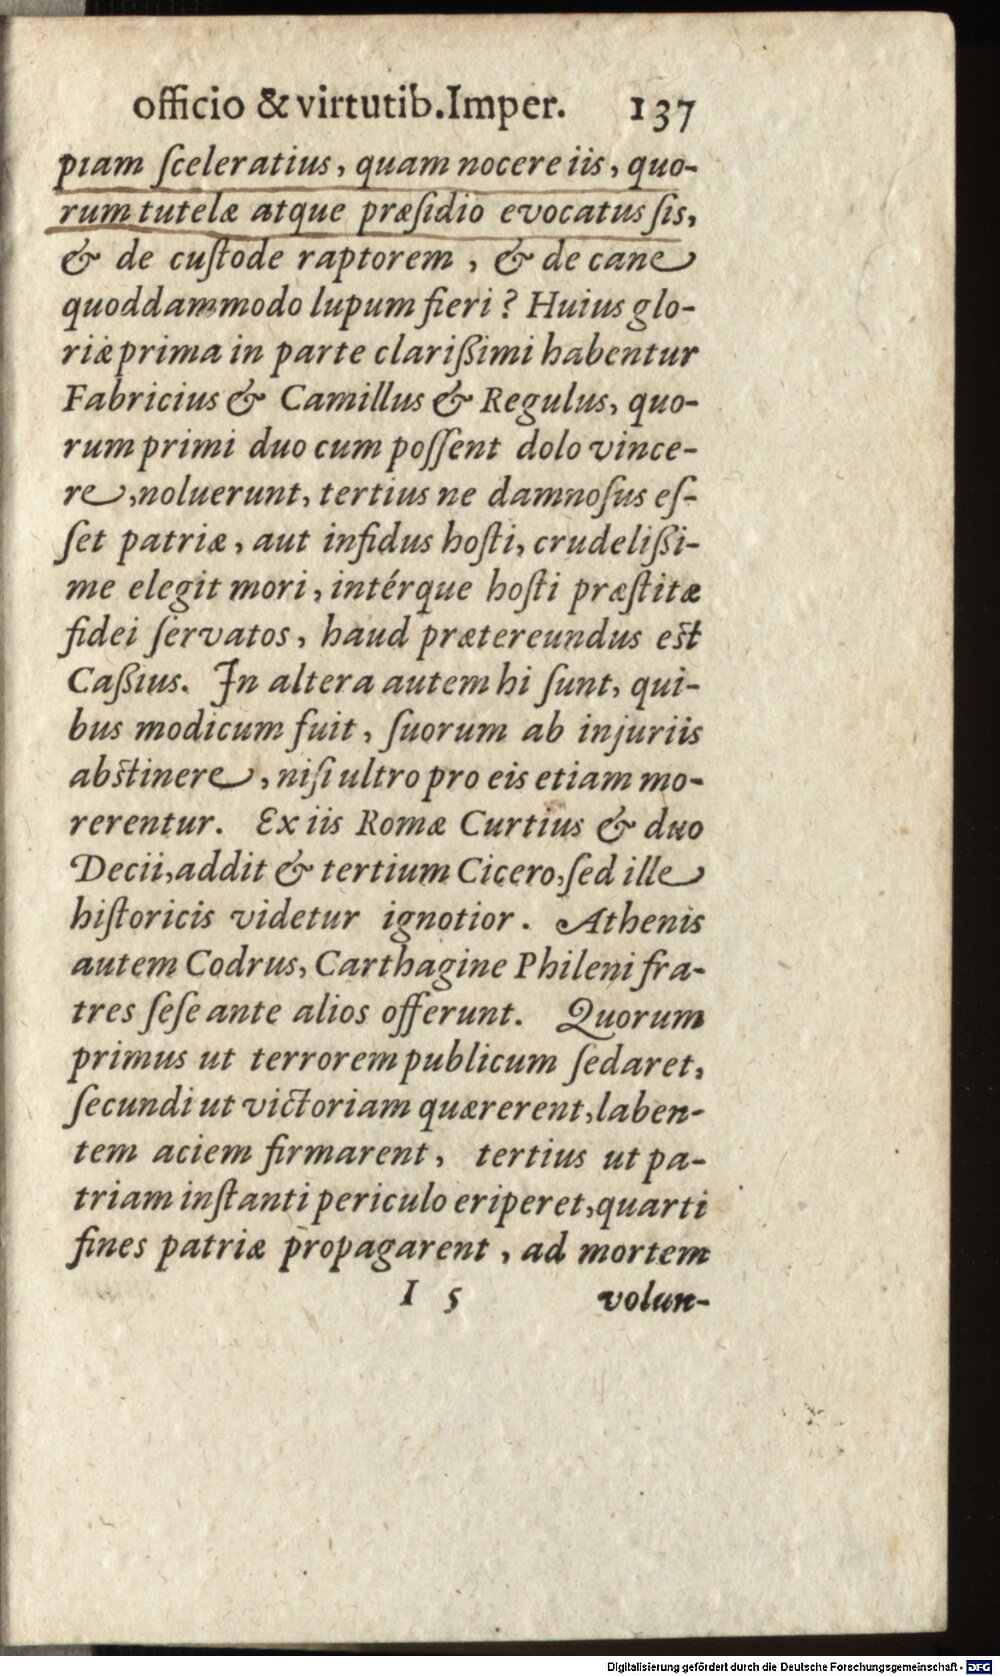 officio & virtutib. Imper. 137
piam ſceleratius, quam nocere iis, quo-
rum tutelæ atque præſidio evocatus ſis,
& de cuſtode raptorem, & de cane
quoddammodo lupum fieri? Huius glo-
riæ prima in parte clarißimi habentur
Fabricius & Camillus & Regulus, quo-
rum primi duo cum poſſent dolo vince-
re, noluerunt, tertius ne damnoſus eſ-
ſet patriæ, aut infidus hoſti, crudelißi-
me elegit mori, intérque hoſti præſtitæ
fidei ſervatos, haud prætereundus est
Caßius. In altera autem hi ſunt, qui-
bus modicum fuit, ſuorum ab injuriis
abstinere, niſi ultro pro eis etiam mo-
rerentur. Ex iis Romæ Curtius & duo
Decii, addit & tertium Cicero, ſed ille
hiſtoricis videtur ignotior. Athenis
autem Codrus, Carthagine Phileni fra-
tres ſeſe ante alios offerunt. Quorum
primus ut terrorem publicum ſedaret,
ſecundi ut victoriam quærerent, laben-
tem aciem firmarent, tertius ut pa-
triam inſtanti periculo eriperet, quarti
fines patriæ propagarent, ad mortem
I 5 volun-
Digitalisierung gefördert durch die Deutsche Forschungsgemeinschaft - DFG